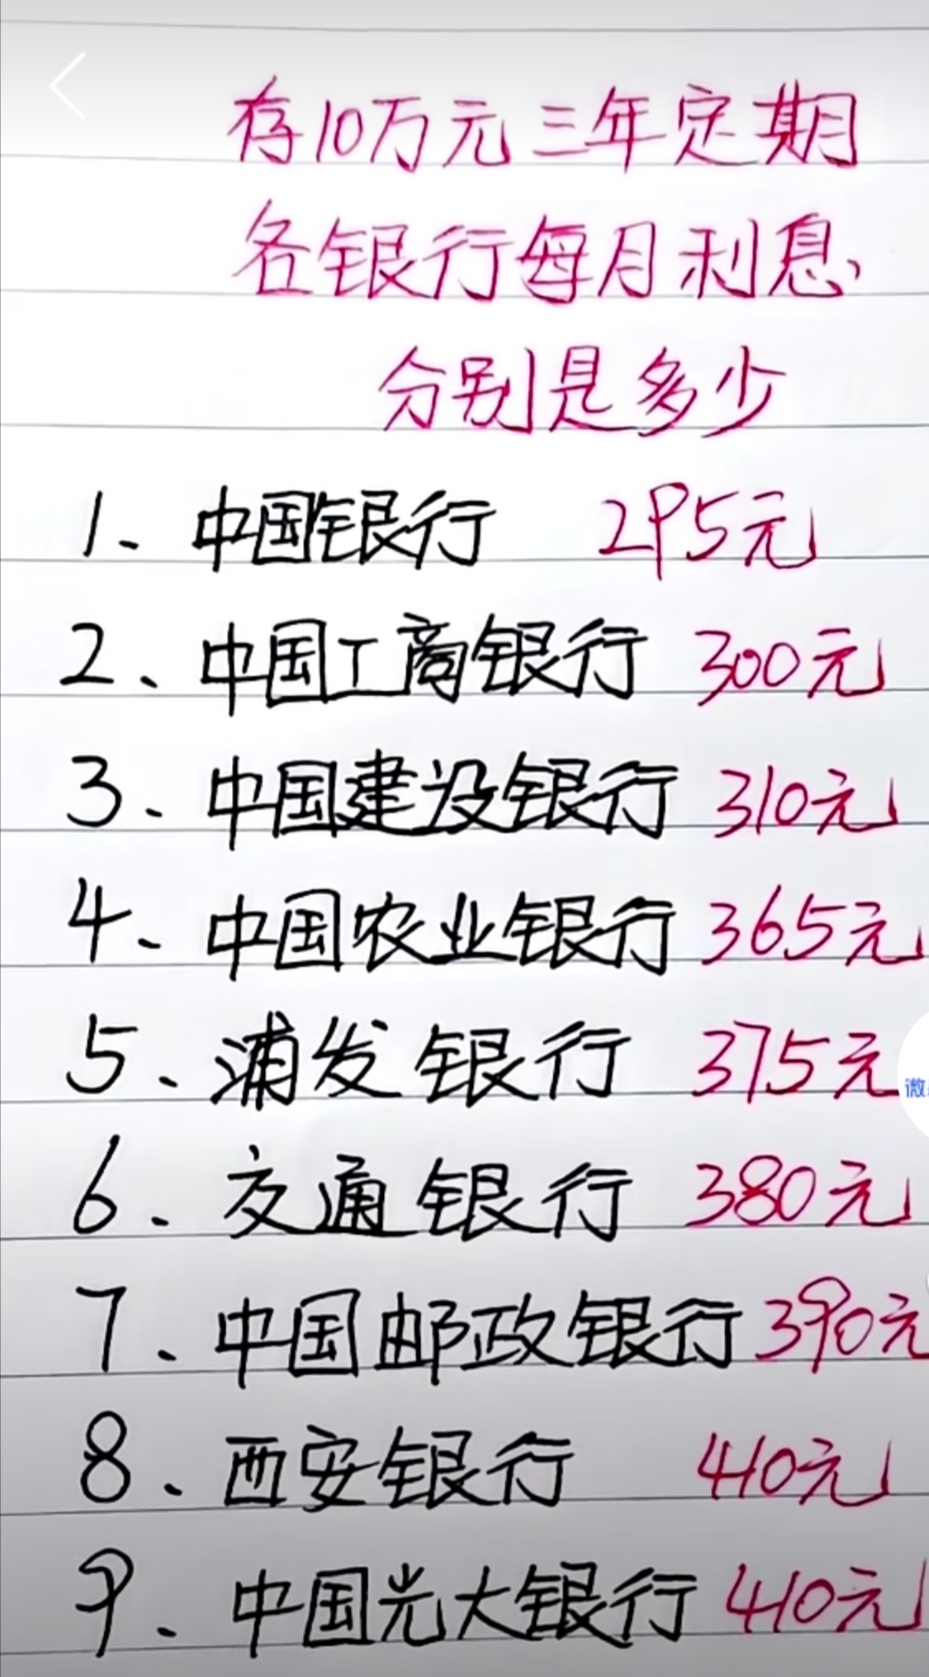 存10万元三年定期
各银行每月利息
分别是多少
1、中国银行 295元
2、中国工商银行 300元
3、中国建设银行 310元
4、中国农业银行 365元
5、浦发银行 375元
微
6、交通银行 380元
7、中国邮政银行 390元
8、西安银行 410元
9、中国光大银行 410元